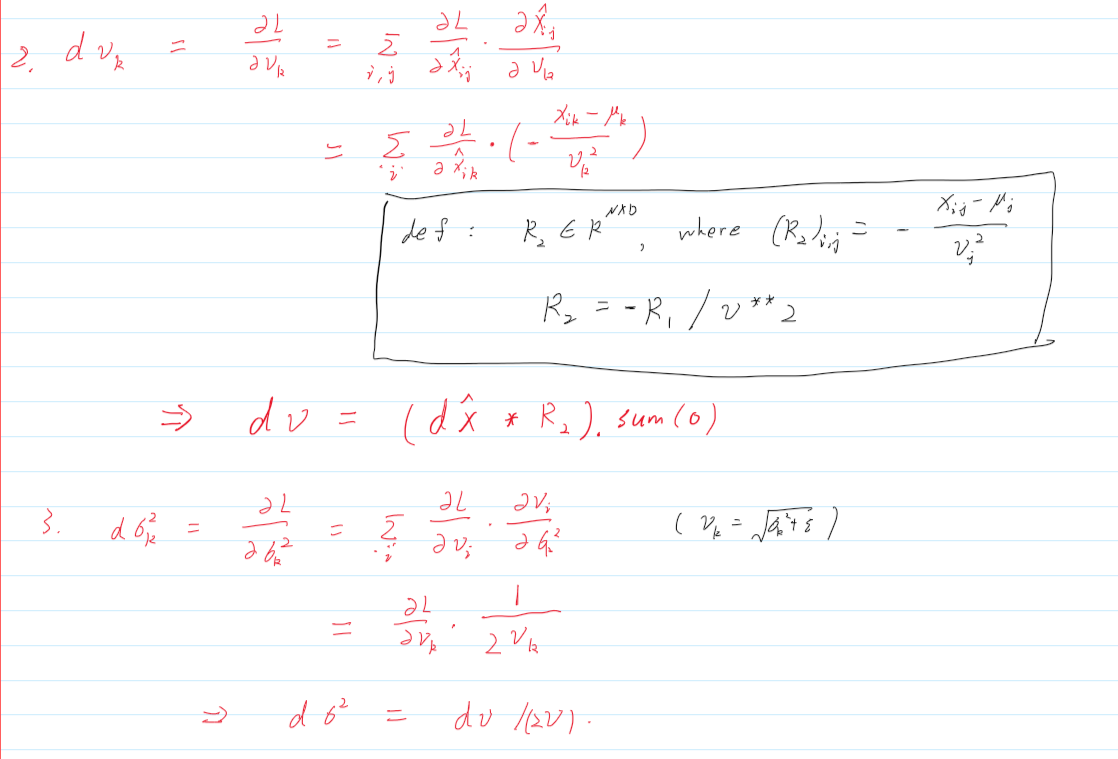 2. d v_k = ∂L/∂v_k = Σ_{i,j} ∂L/∂x̂_{ij} · ∂x̂_{ij}/∂v_k
= Σ_i ∂L/∂x̂_{ik} · (- (x_{ik} - μ_k)/v_k^2)
def : R_2 ∈ R^{N×D}, where (R_2)_{i,j} = - (x_{ij} - μ_j)/v_j^2
R_2 = -R_1 / v ** 2
⇒ d v = (d x̂ * R_2). sum(0)
3. d σ_k^2 = ∂L/∂σ_k^2 = Σ_i ∂L/∂v_i · ∂v_i/∂σ_k^2 ( v_k = √(σ_k^2 + ε) )
= ∂L/∂v_k · 1/(2 v_k)
⇒ d σ^2 = d v /(2v).